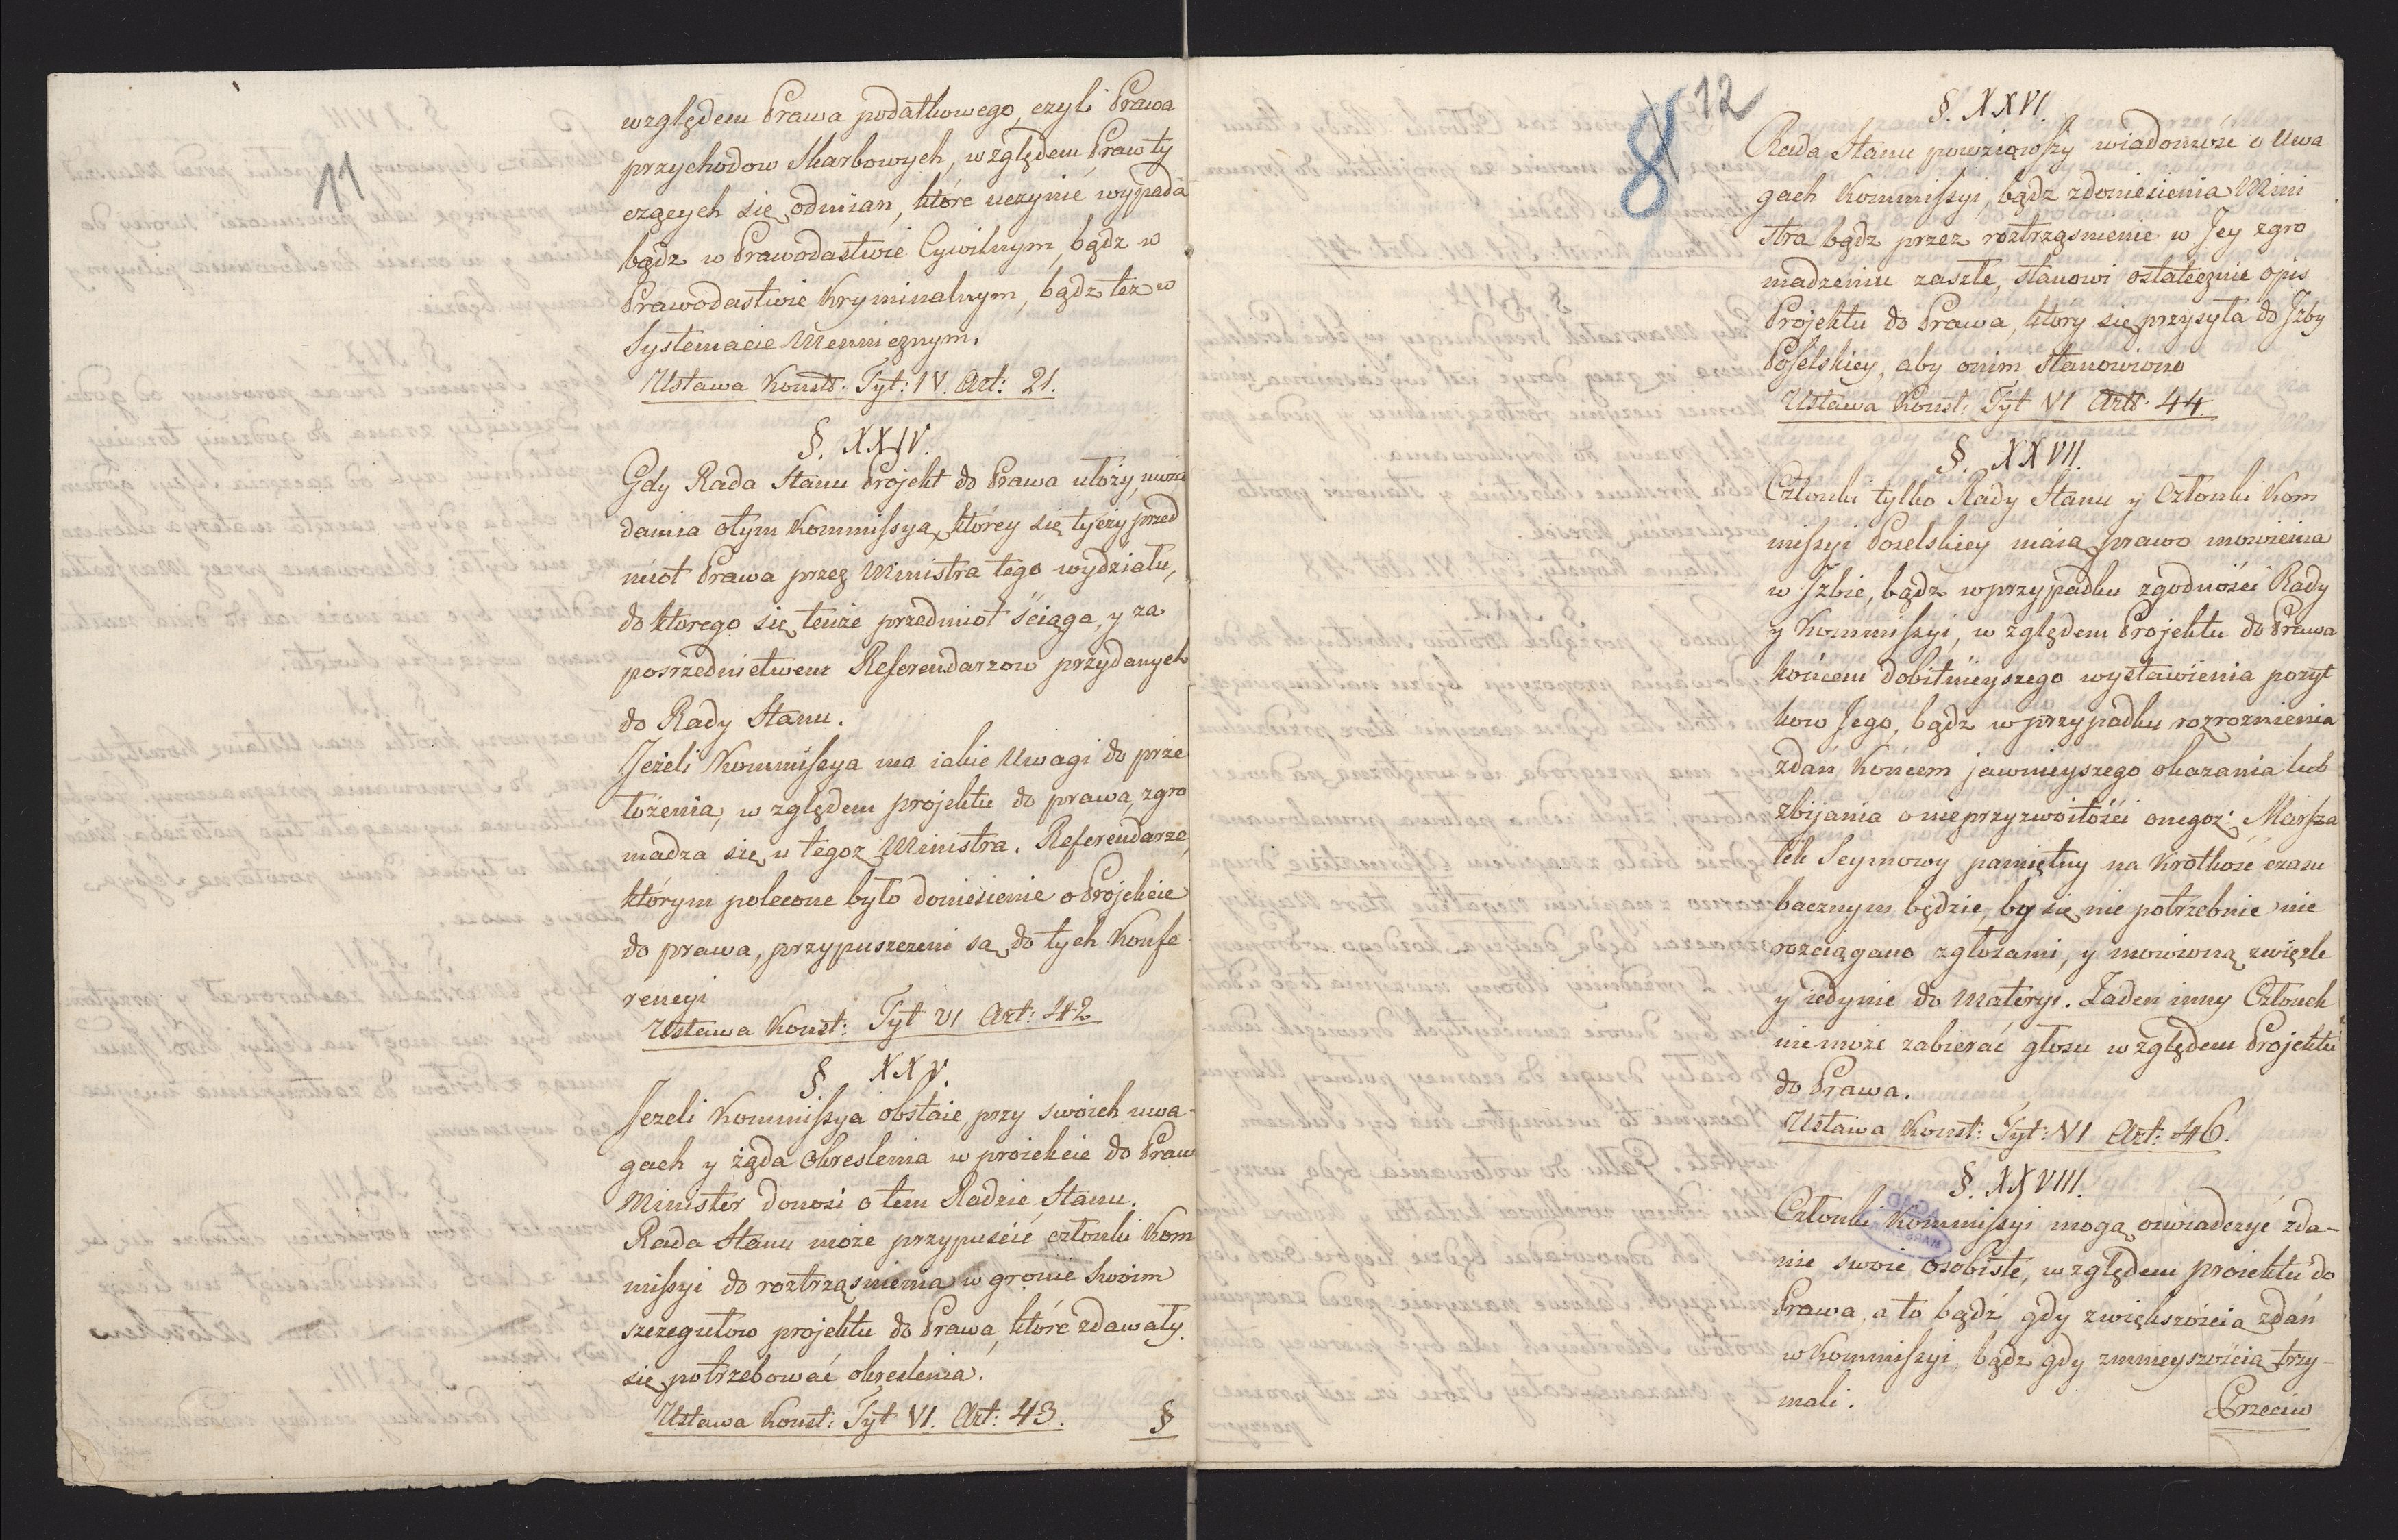 11
względem Prawa podatkowego, czyli Prawa
przychodow Skarbowych, względem Praw ty
czących się odmian, które uczynić wypada
bądz w Prawodastwie Cywilnym, bądz w
Prawodastwie Kryminalnym, bądz też w
Systemacie Mennicznym.
Ustawa Konst: Tyt: IV. Art: 21.
§. XXIV.
Gdy Rada Stanu Projekt do Prawa ułoży, uwia
damia otym Kommissyą, którey się tyczy przed
miot Prawa przez Ministra tego wydziału,
do ktorego się tenże przedmiot ściąga, y za
posrzednictwem Referendarzow przydanych
do Rady Stanu.
Jeżeli Kommissya ma iakie Uwagi do prze
łożenia, względem projektu do prawa, zgro
madza się u tegoz Ministra. Referendarze,
którym polecone było doniesienie o Projekcie
do prawa, przypuszczeni są do tych Konfe
rencyi
Ustawa Konst: Tyt VI Art: 42
§. XXV.
Jezeli Kommissya obstaie przy swoich uwa-
gach y żąda Okreslenia w proiekcie do Praw
Minister donosi o tem Radzie Stanu.
Rada Stanu może przypuścić członki Kom
missyi do roztrząsnienia w gronie Swoim
szczegułow projektu do Prawa, które zdawały
się potrzebować okreslenia.
Ustawa Konst: Tyt VI. Art: 43.
§
8 12
§. XXVI.
Rada Stanu powziąwszy wiadomość o Uwa
gach Kommissyi, bądz zdoniesienia Mini
stra bądz przez roztrząsnienie w Jey zgro
madzeniu zaszłe, stanowi ostatecznie opis
Projektu do Prawa, ktory się przysyła do Izby
Poselskiey, aby onim Stanowiono
Ustawa Konst: Tyt VI Art: 44.
§. XXVII.
Członki tylko Rady Stanu y Członki Kom
missyi Poselskiey maią prawo mowienia
w Izbie, bądz w przypadku zgodności Rady
y Kommissyi, względem Projektu do Prawa
końcem dobitnieyszego wystawienia pożyt
kow Jego, bądz w przypadku rozroznienia
zdań, Końcem jawnieyszego okazania lub
zbijania o nieprzyzwoitości onegoz: Marsza
łek Seymowy pamiętny na Krotkość czasu
bacznym będzie, by się nie potrzebnie nie
rozciągano zgłosami, y mowiono zwięzle
y iedynie do Materyi. Żaden inny Członek
niemoże zabierać głosu względem Projektu
do Prawa.
Ustawa Konst: Tyt: VI Art: 46.
§. XXVIII.
Członki Kommissyi mogą oswiadczyć zda-
nie swoie osobiste, względem proiektu do
Prawa, a to bądź gdy zwiększością zdań
w Kommissyi, bądz gdy zmnieyszością trzy-
mali.
Przeciw